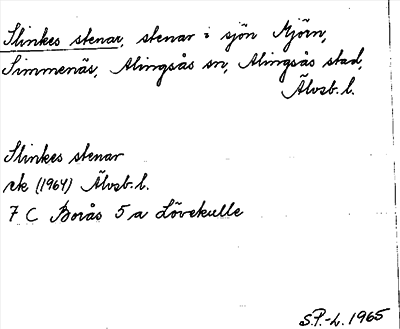 Slinkes stenar, stenar i sjön Mjörn,
Simmenäs, Alingsås sn, Alingsås stad,
Älvsb. l.
Slinkes stenar
ek (1964) Älvsb. l.
7 C Borås 5 a Lövekulle
S.P.-L. 1965